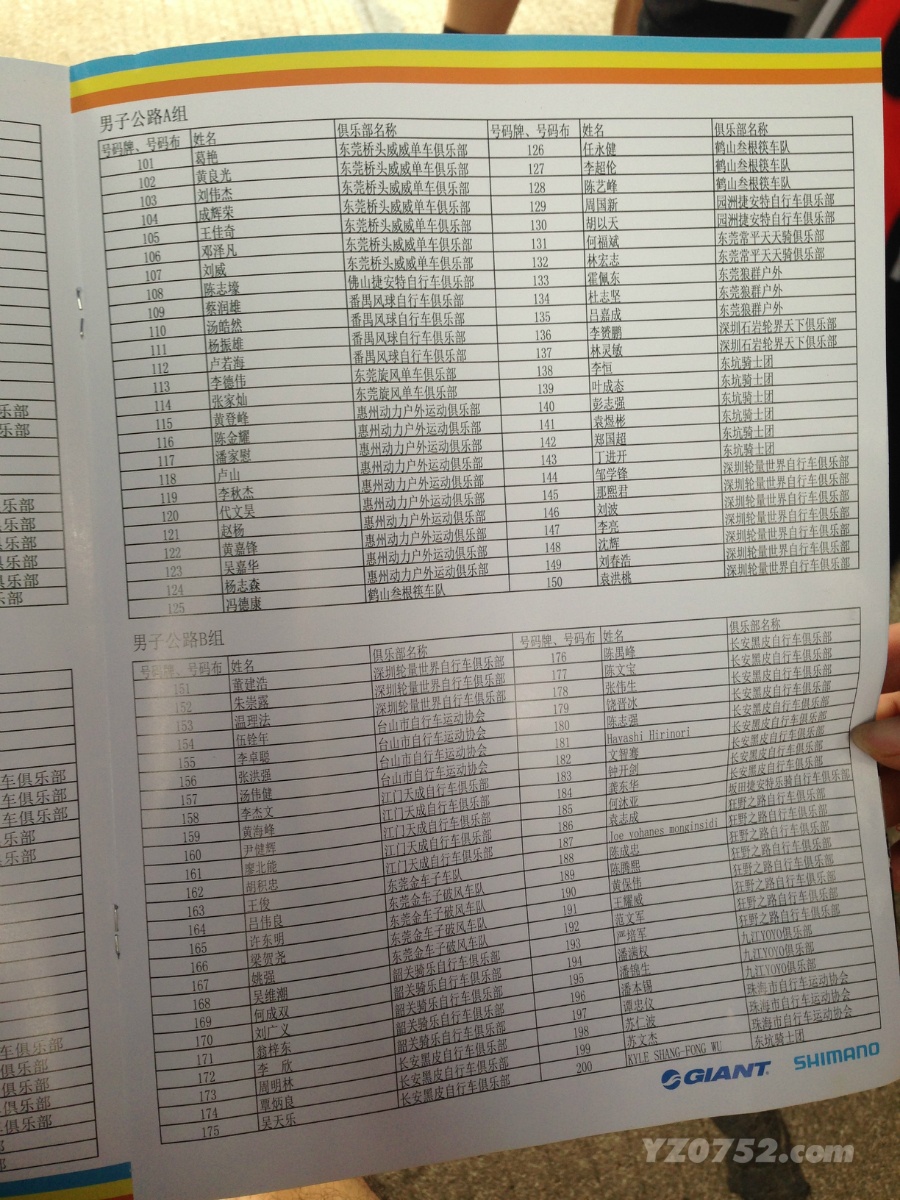 男子公路A组
号码牌、号码布 姓名 俱乐部名称 号码牌、号码布 姓名 俱乐部名称
101 葛艳 东莞桥头威威单车俱乐部 126 任永健 鹤山叁根筷车队
102 黄良光 东莞桥头威威单车俱乐部 127 李超伦 鹤山叁根筷车队
103 刘伟杰 东莞桥头威威单车俱乐部 128 陈艺峰 鹤山叁根筷车队
104 成辉荣 东莞桥头威威单车俱乐部 129 周国新 园洲捷安特自行车俱乐部
105 王佳奇 东莞桥头威威单车俱乐部 130 胡以天 园洲捷安特自行车俱乐部
106 邓泽凡 东莞桥头威威单车俱乐部 131 何福斌 东莞常平天天骑俱乐部
107 刘威 东莞桥头威威单车俱乐部 132 林宏志 东莞常平天天骑俱乐部
108 陈志壕 佛山捷安特自行车俱乐部 133 霍佩东 东莞狼群户外
109 蔡润雄 番禺风球自行车俱乐部 134 杜志坚 东莞狼群户外
110 汤皓然 番禺风球自行车俱乐部 135 吕嘉成 东莞狼群户外
111 杨振雄 番禺风球自行车俱乐部 136 李赟鹏 深圳石岩轮界天下俱乐部
112 卢若海 番禺风球自行车俱乐部 137 林灵敏 深圳石岩轮界天下俱乐部
113 李德伟 东莞旋风单车俱乐部 138 李恒 东坑骑士团
114 张家灿 东莞旋风单车俱乐部 139 叶成态 东坑骑士团
115 黄登峰 惠州动力户外运动俱乐部 140 彭志强 东坑骑士团
116 陈金耀 惠州动力户外运动俱乐部 141 袁煜彬 东坑骑士团
117 潘家慰 惠州动力户外运动俱乐部 142 郑国超 东坑骑士团
118 卢山 惠州动力户外运动俱乐部 143 丁进开 东坑骑士团
119 李秋杰 惠州动力户外运动俱乐部 144 邹学锋 深圳轮量世界自行车俱乐部
120 代文昊 惠州动力户外运动俱乐部 145 那熙君 深圳轮量世界自行车俱乐部
121 赵杨 惠州动力户外运动俱乐部 146 刘波 深圳轮量世界自行车俱乐部
122 黄嘉锋 惠州动力户外运动俱乐部 147 李亮 深圳轮量世界自行车俱乐部
123 吴嘉华 惠州动力户外运动俱乐部 148 沈辉 深圳轮量世界自行车俱乐部
124 杨志森 惠州动力户外运动俱乐部 149 刘春浩 深圳轮量世界自行车俱乐部
125 冯德康 鹤山叁根筷车队 150 袁洪桃 深圳轮量世界自行车俱乐部
男子公路B组
号码牌、号码布 姓名 俱乐部名称 号码牌、号码布 姓名 俱乐部名称
151 董建浩 深圳轮量世界自行车俱乐部 176 陈禺峰 长安黑皮自行车俱乐部
152 朱崇露 深圳轮量世界自行车俱乐部 177 陈文宝 长安黑皮自行车俱乐部
153 温理法 深圳轮量世界自行车俱乐部 178 张伟生 长安黑皮自行车俱乐部
154 伍铨年 台山市自行车运动协会 179 饶晋冰 长安黑皮自行车俱乐部
155 李卓聪 台山市自行车运动协会 180 陈志强 长安黑皮自行车俱乐部
156 张洪强 台山市自行车运动协会 181 Hayashi Hirinori 长安黑皮自行车俱乐部
157 汤伟健 台山市自行车运动协会 182 文智赛 长安黑皮自行车俱乐部
158 李杰文 江门天成自行车俱乐部 183 钟开剑 长安黑皮自行车俱乐部
159 黄海峰 江门天成自行车俱乐部 184 龚东华 长安黑皮自行车俱乐部
160 尹健辉 江门天成自行车俱乐部 185 何沐亚 坂田捷安特乐骑自行车俱乐部
161 廖北能 江门天成自行车俱乐部 186 袁志成 狂野之路自行车俱乐部
162 胡积忠 江门天成自行车俱乐部 187 Joe yohanes monginsidi 狂野之路自行车俱乐部
163 王俊 东莞金车子车队 188 陈成忠 狂野之路自行车俱乐部
164 吕伟良 东莞金车子破风车队 189 陈腾熙 狂野之路自行车俱乐部
165 许东明 东莞金车子破风车队 190 黄保伟 狂野之路自行车俱乐部
166 梁贺尧 东莞金车子破风车队 191 王耀威 狂野之路自行车俱乐部
167 姚强 东莞金车子破风车队 192 范文军 狂野之路自行车俱乐部
168 吴维潮 韶关骑乐自行车俱乐部 193 严培军 狂野之路自行车俱乐部
169 何成双 韶关骑乐自行车俱乐部 194 潘满权 九江YOYO俱乐部
170 刘广义 韶关骑乐自行车俱乐部 195 潘锦生 九江YOYO俱乐部
171 翁梓东 韶关骑乐自行车俱乐部 196 潘本锡 九江YOYO俱乐部
172 李 欣 韶关骑乐自行车俱乐部 197 谭忠仪 珠海市自行车运动协会
173 周明林 长安黑皮自行车俱乐部 198 苏仁波 珠海市自行车运动协会
174 覃炳良 长安黑皮自行车俱乐部 199 苏文杰 珠海市自行车运动协会
175 吴天乐 长安黑皮自行车俱乐部 200 KYLE SHANG-FONG WU 东坑骑士团
GIANT SHIMANO
YZ0752.com